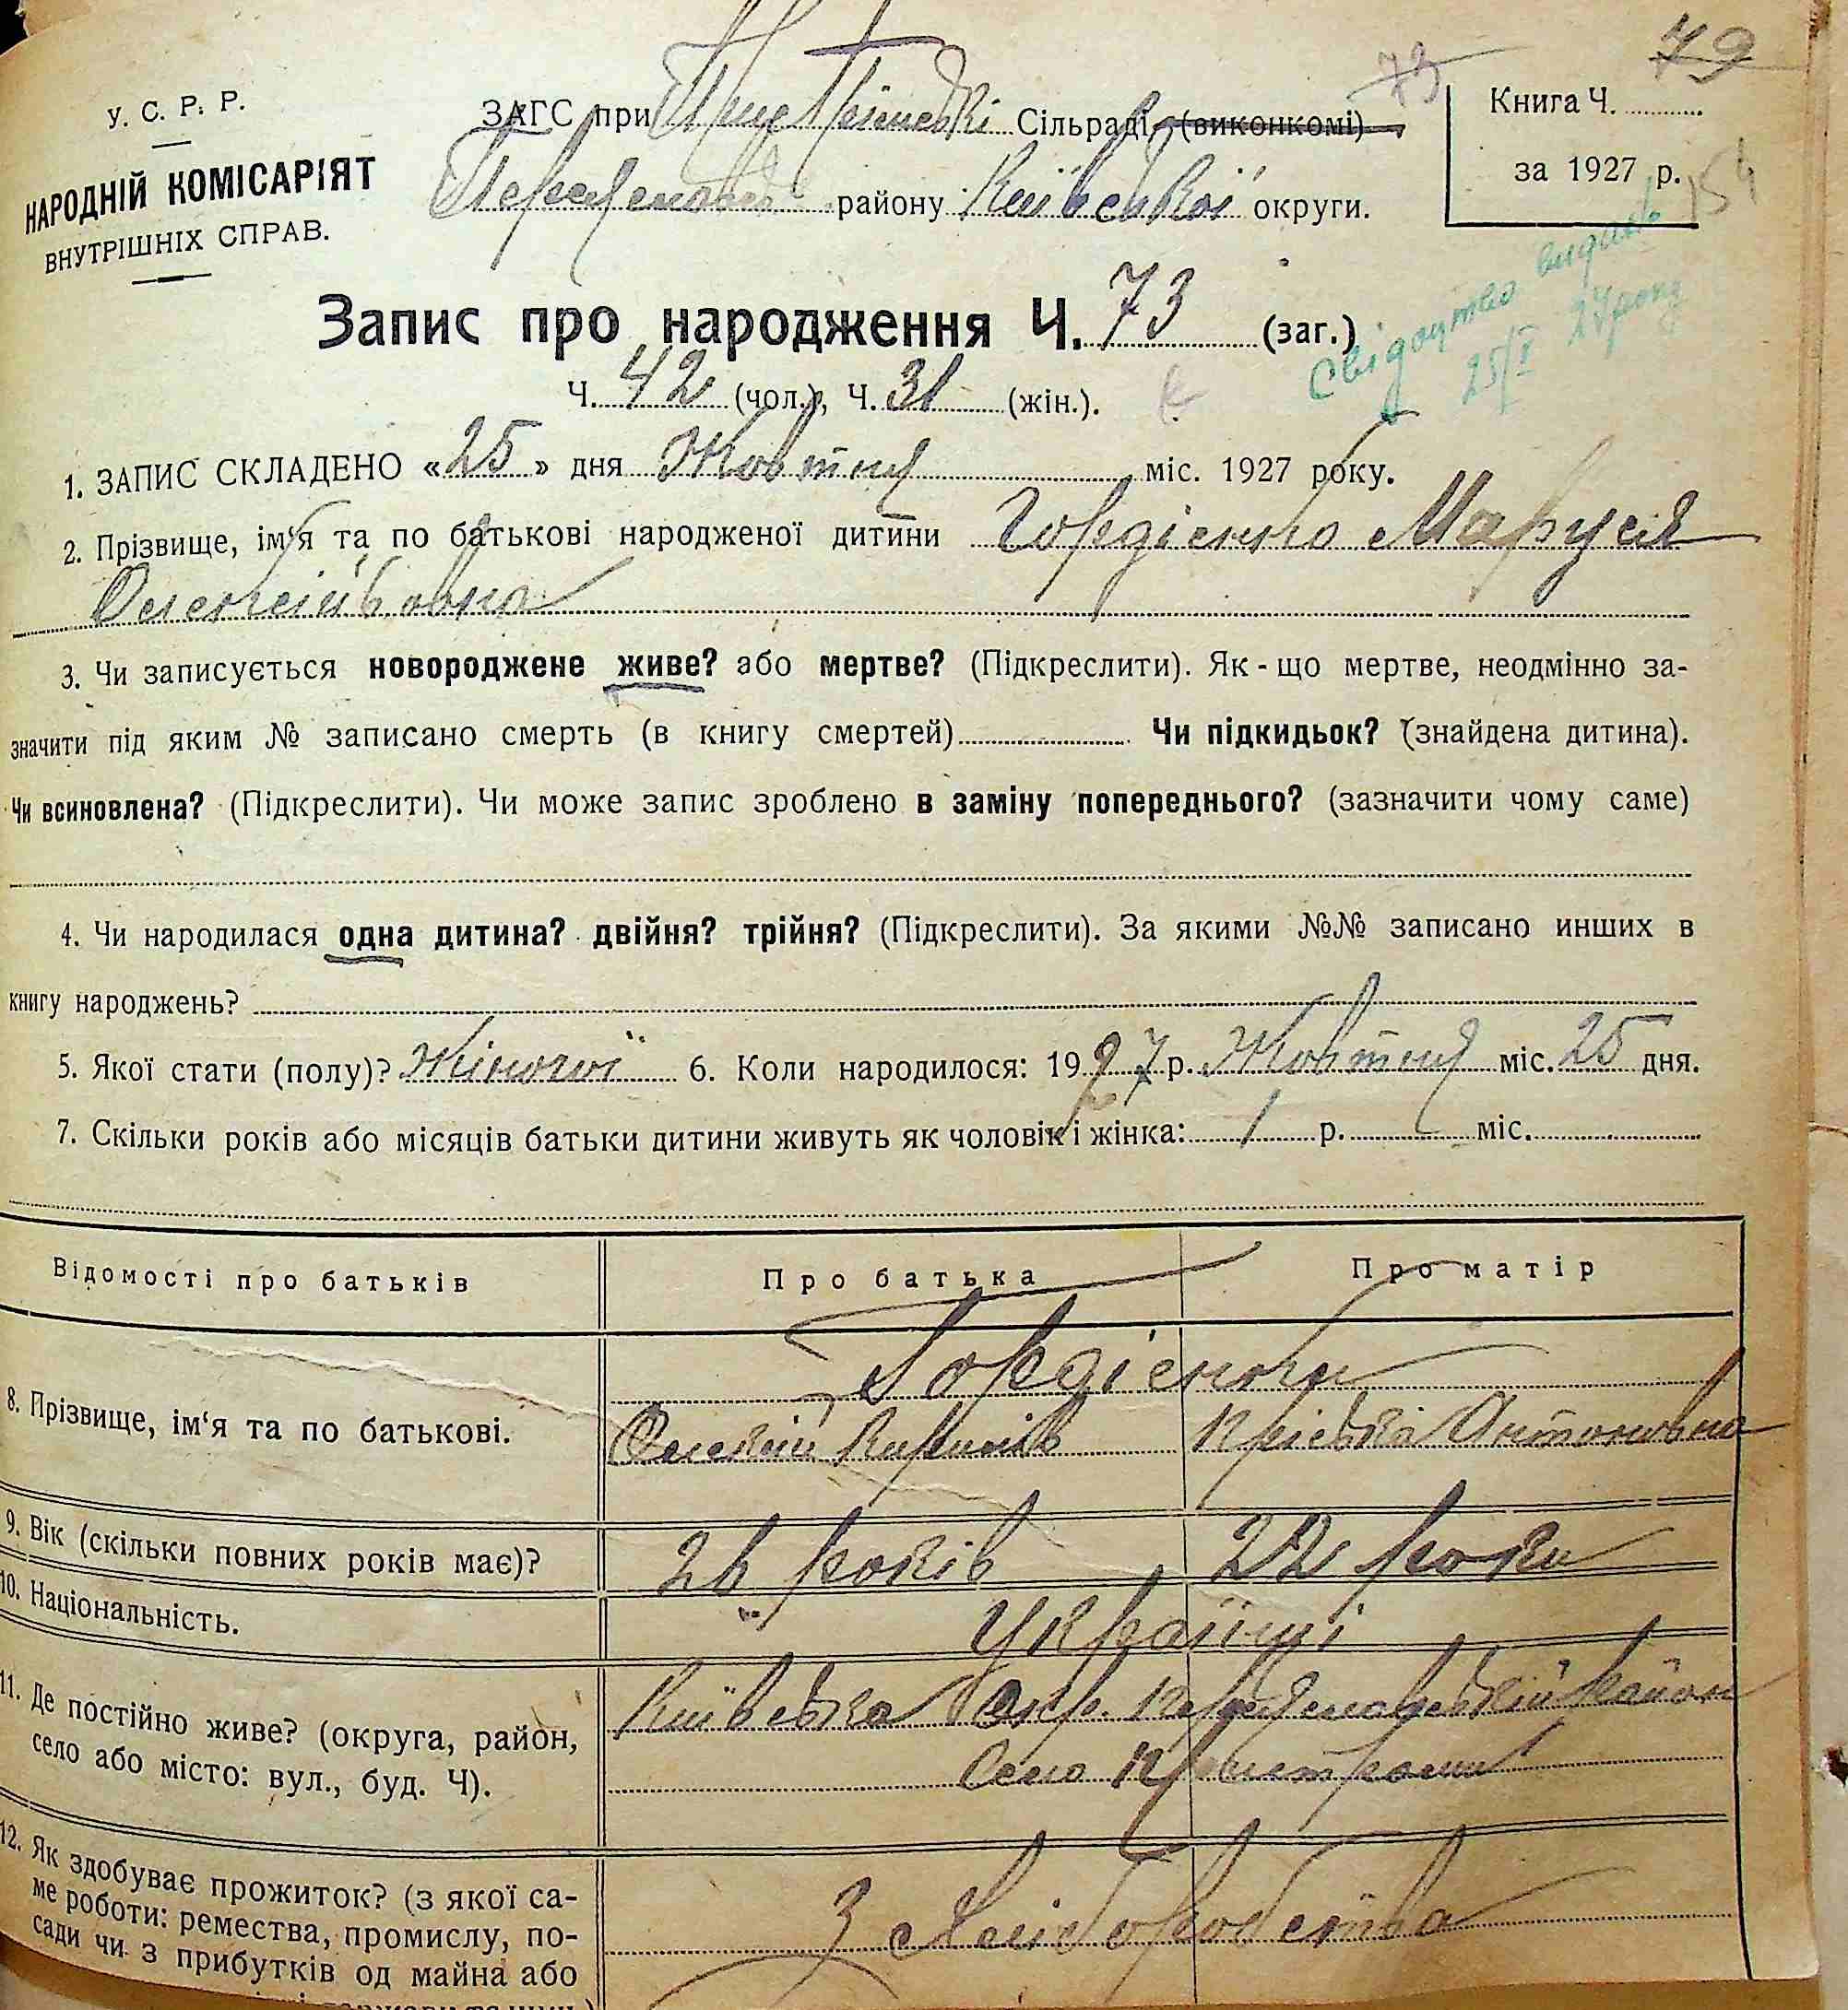 79
73
У. С. Р. Р.
НАРОДНІЙ КОМІСАРІЯТ
ВНУТРІШНІХ СПРАВ.
ЗАГС при Сільраді (виконкомі)
району Київської округи.
Книга Ч.
за 1927 р.
154
Свідоцтво видано
25/I 27 року
Запис про народження Ч. 73 (заг.)
Ч. 42 (чол.), Ч. 31 (жін.).
1. ЗАПИС СКЛАДЕНО «25» дня Жовтня міс. 1927 року.
2. Прізвище, ім'я та по батькові народженої дитини Гордієнко Маруся
Олексійовна
3. Чи записується новороджене живе? або мертве? (Підкреслити). Як-що мертве, неодмінно за-
значити під яким № записано смерть (в книгу смертей) Чи підкидьок? (знайдена дитина).
Чи всиновлена? (Підкреслити). Чи може запис зроблено в заміну попереднього? (зазначити чому саме)
4. Чи народилася одна дитина? двійня? трійня? (Підкреслити). За якими №№ записано инших в
книгу народжень?
5. Якої стати (полу)? Жіночої 6. Коли народилося: 1927 р. Жовтня міс. 25 дня.
7. Скільки років або місяців батьки дитини живуть як чоловік і жінка: 1 р. міс.
Відомості про батьків Про батька Про матір
Гордієнки
8. Прізвище, ім'я та по батькові. Олексій Кирилів Пріська Антоновна
9. Вік (скільки повних років має)? 26 років 22 роки
10. Національність. Українці
11. Де постійно живе? (округа, район,
село або місто: вул., буд. Ч).
Київська Окр. район
Село
12. Як здобуває прожиток? (з якої са-
ме роботи: ремества, промислу, по-
сади чи з прибутків од майна або
З Хліборобства